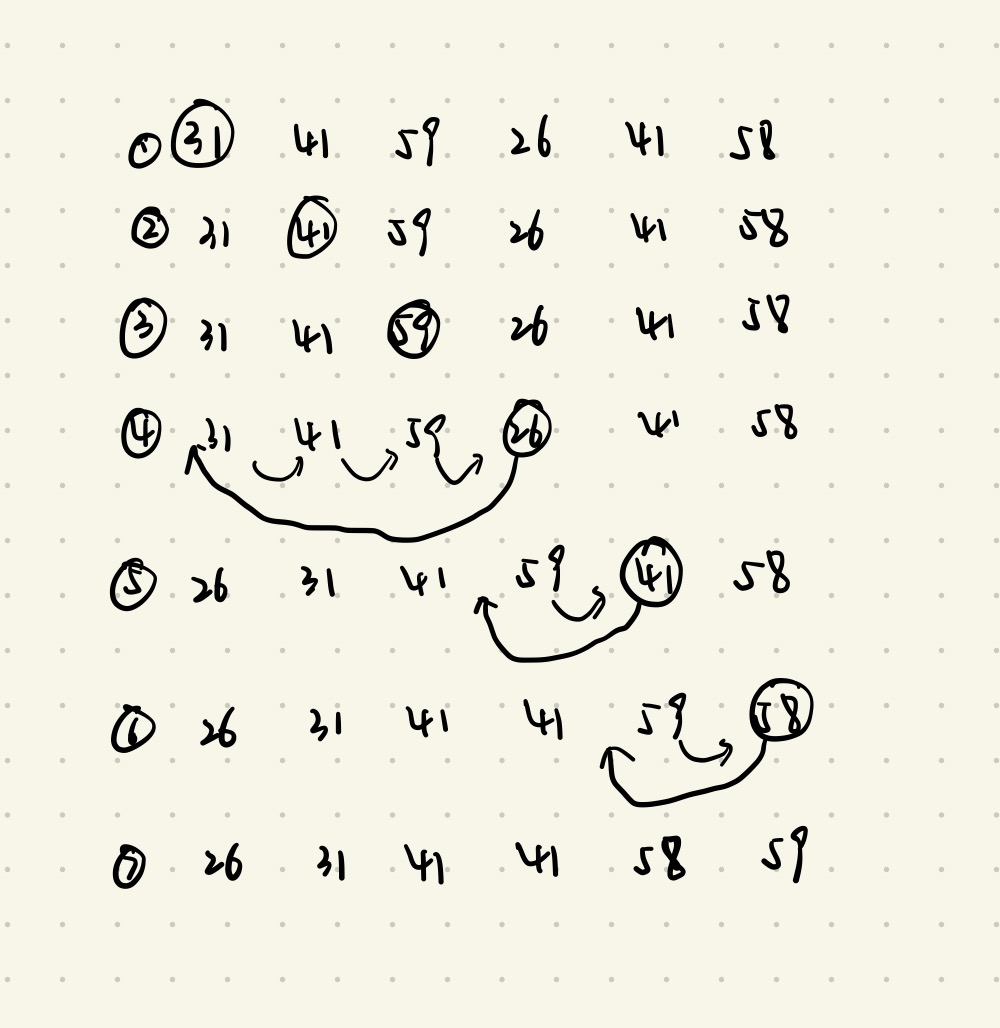 ① 31 41 59 26 41 58
② 31 41 59 26 41 58
③ 31 41 59 26 41 58
④ 31 41 59 26 41 58
⑤ 26 31 41 59 41 58
⑥ 26 31 41 41 59 58
⑦ 26 31 41 41 58 59